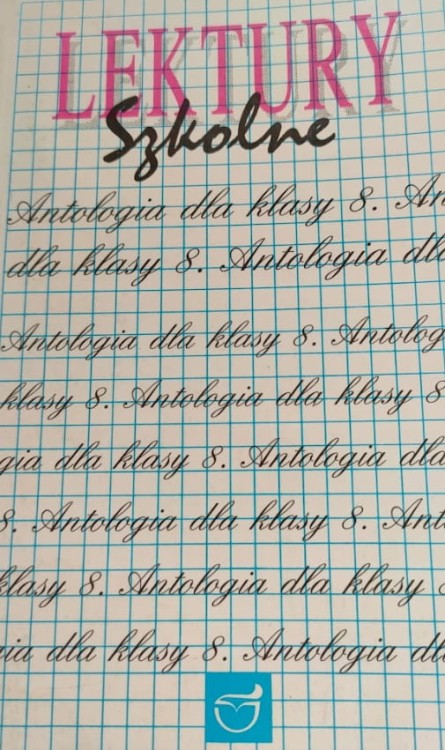 LEKTURY
Szkolne
Antologia dla klasy 8. An
dla klasy 8. Antologia dla
Antologia dla klasy 8. Antolog
klasy 8. Antologia dla klasy 8
gia dla klasy 8. Antologia dla
8. Antologia dla klasy 8. Ant
klasy 8. Antologia dla klasy 8
ia dla klasy 8. Antologia dla